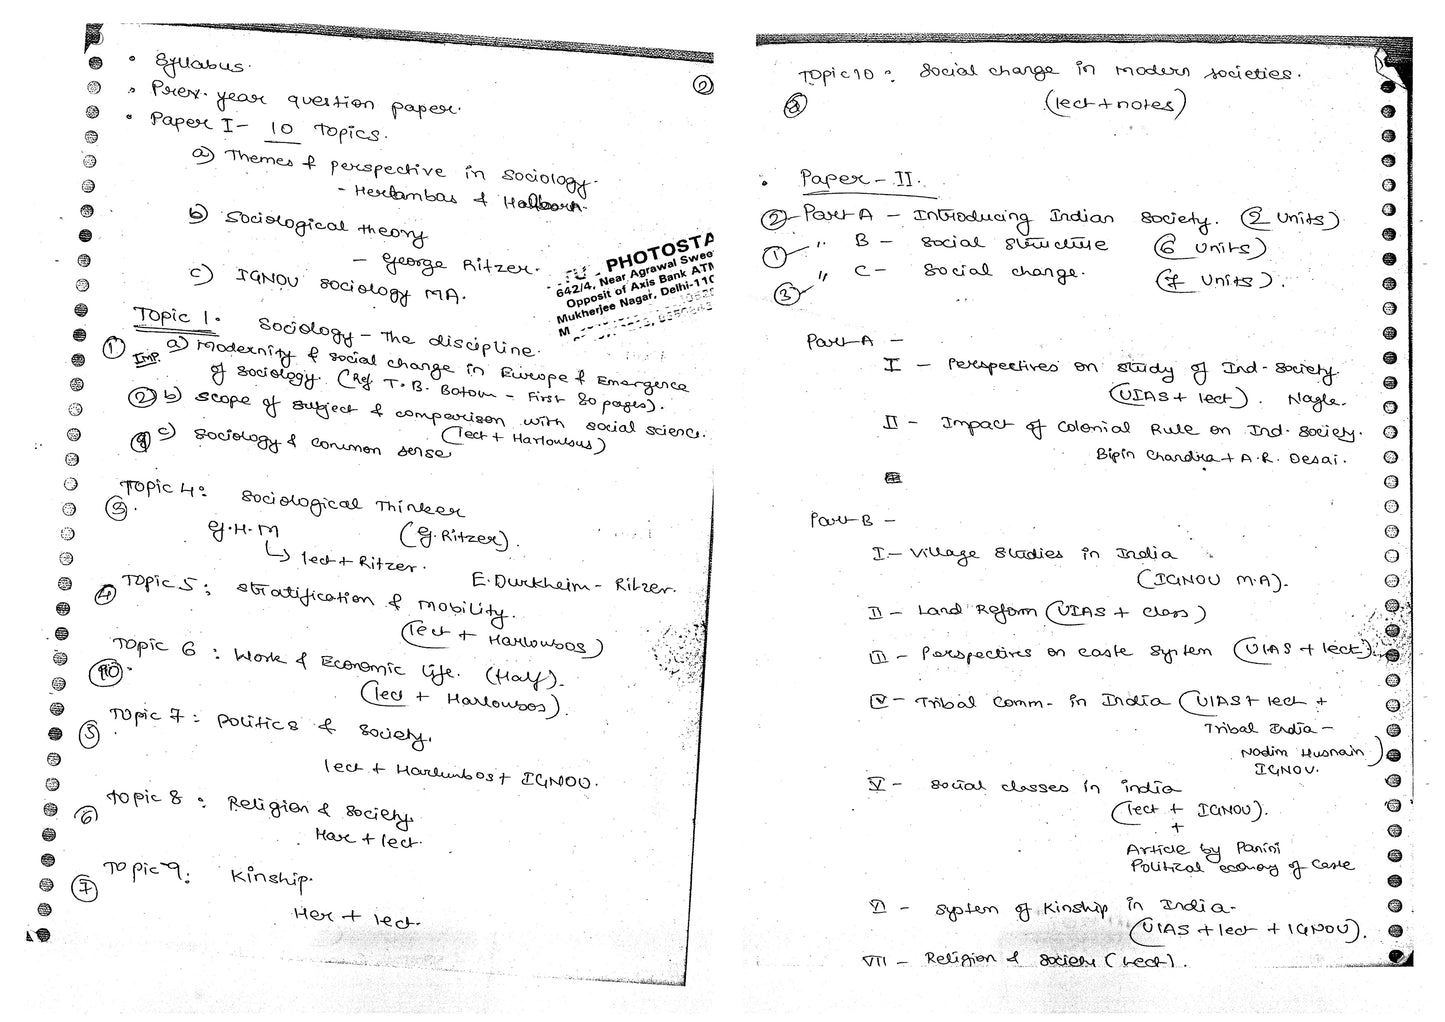 • Syllabus.
• Prev. year question paper.
• Paper I - 10 Topics.
a) Themes & perspective in Sociology.
- Herlambas &
b) Sociological theory
- George Ritzer.
c) IGNOU Sociology MA.
②
PHOTOSTA
642/4, Near Agrawal Swee
Opposit of Axis Bank ATM
Mukherjee Nagar, Delhi-110
M
Topic 1. Sociology - The discipline.
① Imp. a) Modernity & social change in Europe & Emergence
of sociology. (Ref T.B. Botom - First 80 pages).
② b) scope of subject & comparison with social science.
(lect + Harloubus)
c) Sociology & common sense
Topic 4: Sociological Thinker
③ G.H.M (G. Ritzer).
↳ lect + Ritzer.
E. Durkheim - Ritzer.
④ Topic 5: Stratification & mobility.
(lect + Harloubos)
Topic 6: Work & Economic life. (Half).
(lect + Harloubos).
Topic 7: Politics & Society.
⑤
lect + Harlumbos + IGNOU.
Topic 8: Religion & Society.
⑥
Har + lect.
Topic 9: Kinship.
⑦
Her + lect.
Topic 10: Social change in modern societies.
(lect + notes)
• Paper - II.
② - Part A - Introducing Indian Society. (2 Units)
① - " B - Social Structure (6 Units)
③ - " C - Social change. (7 Units).
Part A -
I - Perspectives on study of Ind. Society
(UIAS + lect). Nagla.
II - Impact of Colonial Rule on Ind. Society.
Bipin Chandra + A.R. Desai.
Part B -
I - Village Studies in India
(IGNOU M.A).
II - Land Reform (UIAS + class)
III - Perspectives on caste System (UIAS + lect).
IV - Tribal Comm. in India (UIAS + lect +
Tribal India -
Nadim Husnain)
IGNOU.
V - Social classes in india
(lect + IGNOU).
+
Article by Panini
Political economy of Caste
VI - System of Kinship in India.
(UIAS + lect + IGNOU).
VII - Religion & Society (Lect).